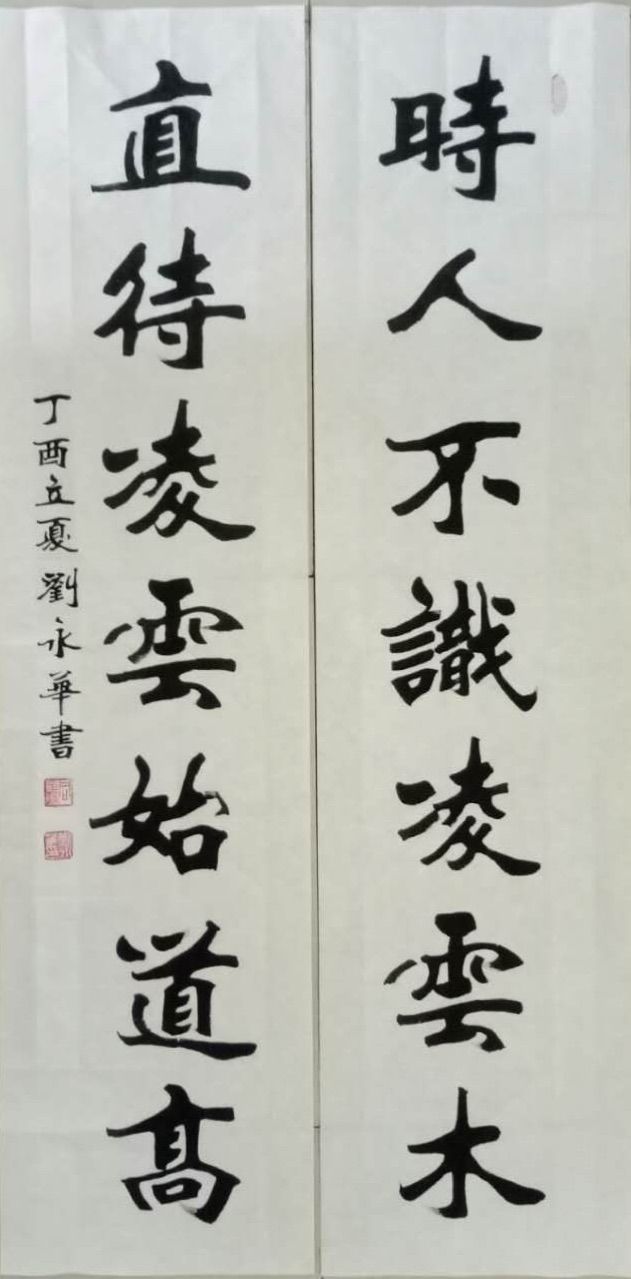 時人不識凌雲木
直待凌雲始道高
丁酉立夏劉永華書